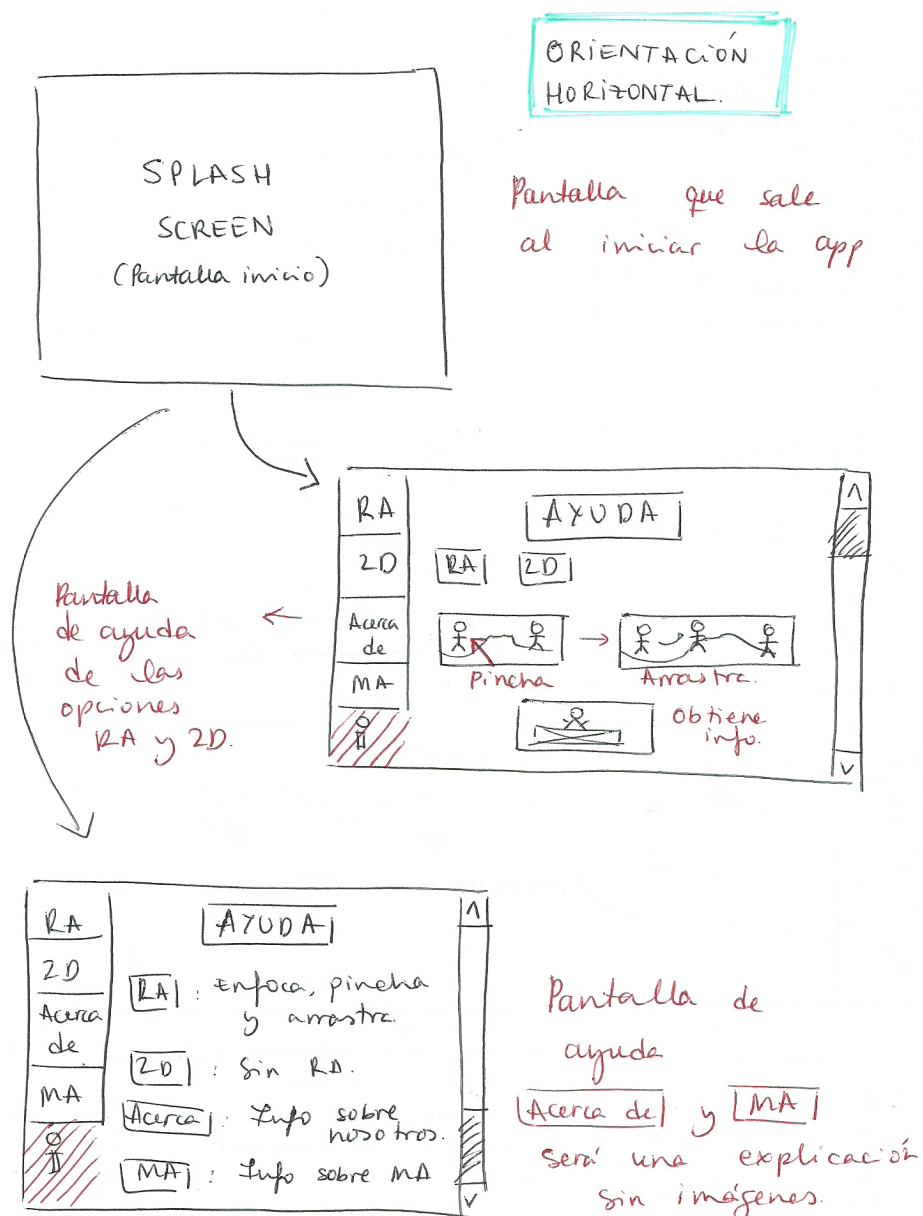 ORIENTACIÓN
HORIZONTAL.
SPLASH
SCREEN
(Pantalla inicio)
Pantalla que sale
al iniciar la app
RA
2D
Acerca
de
MA
AYUDA
RA 2D
Pincha
Arrastra.
Obtiene
info.
Pantalla
de ayuda
de las
opciones
RA y 2D.
RA
2D
Acerca
de
MA
AYUDA
RA : Enfoca, pincha
y arrastra.
2D : Sin RA.
Acerca : Info sobre
nosotros.
MA : Info sobre MA
Pantalla de
ayuda
Acerca de y MA
será una explicación
sin imágenes.